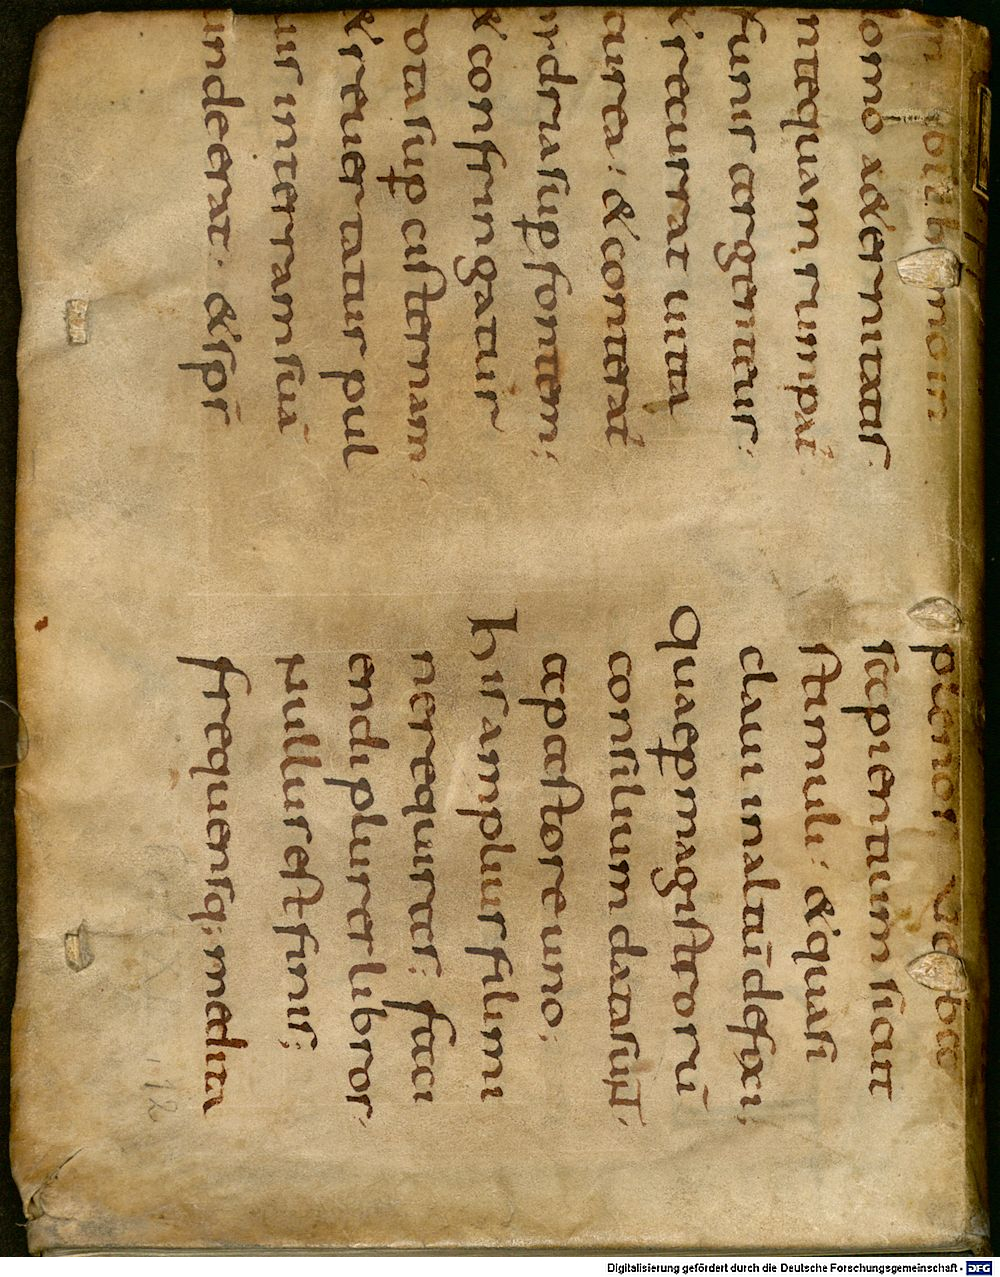 ibit homo in
omo aeternitatis.
ntequam rumpat̄
funis argenteus:
& recurrat uitta
aurea: & conterat̄
ydria sup̱ fontem;
& confringatur
rota sup̱ cisternam;
& reuertatur pul
uis in terram suā
unde erat. & sp̄s
plenos uerba
sapientium sicut
stimuli: & quasi
claui in altū defixi,
quae p̱ magistrorū
consilium data sun̄t.
a pastore uno;
His amplius fili mi
ne requiras: faci
endi plures libros.
nullus est finis;
frequensq; medita
Digitalisierung gefördert durch die Deutsche Forschungsgemeinschaft - DFG